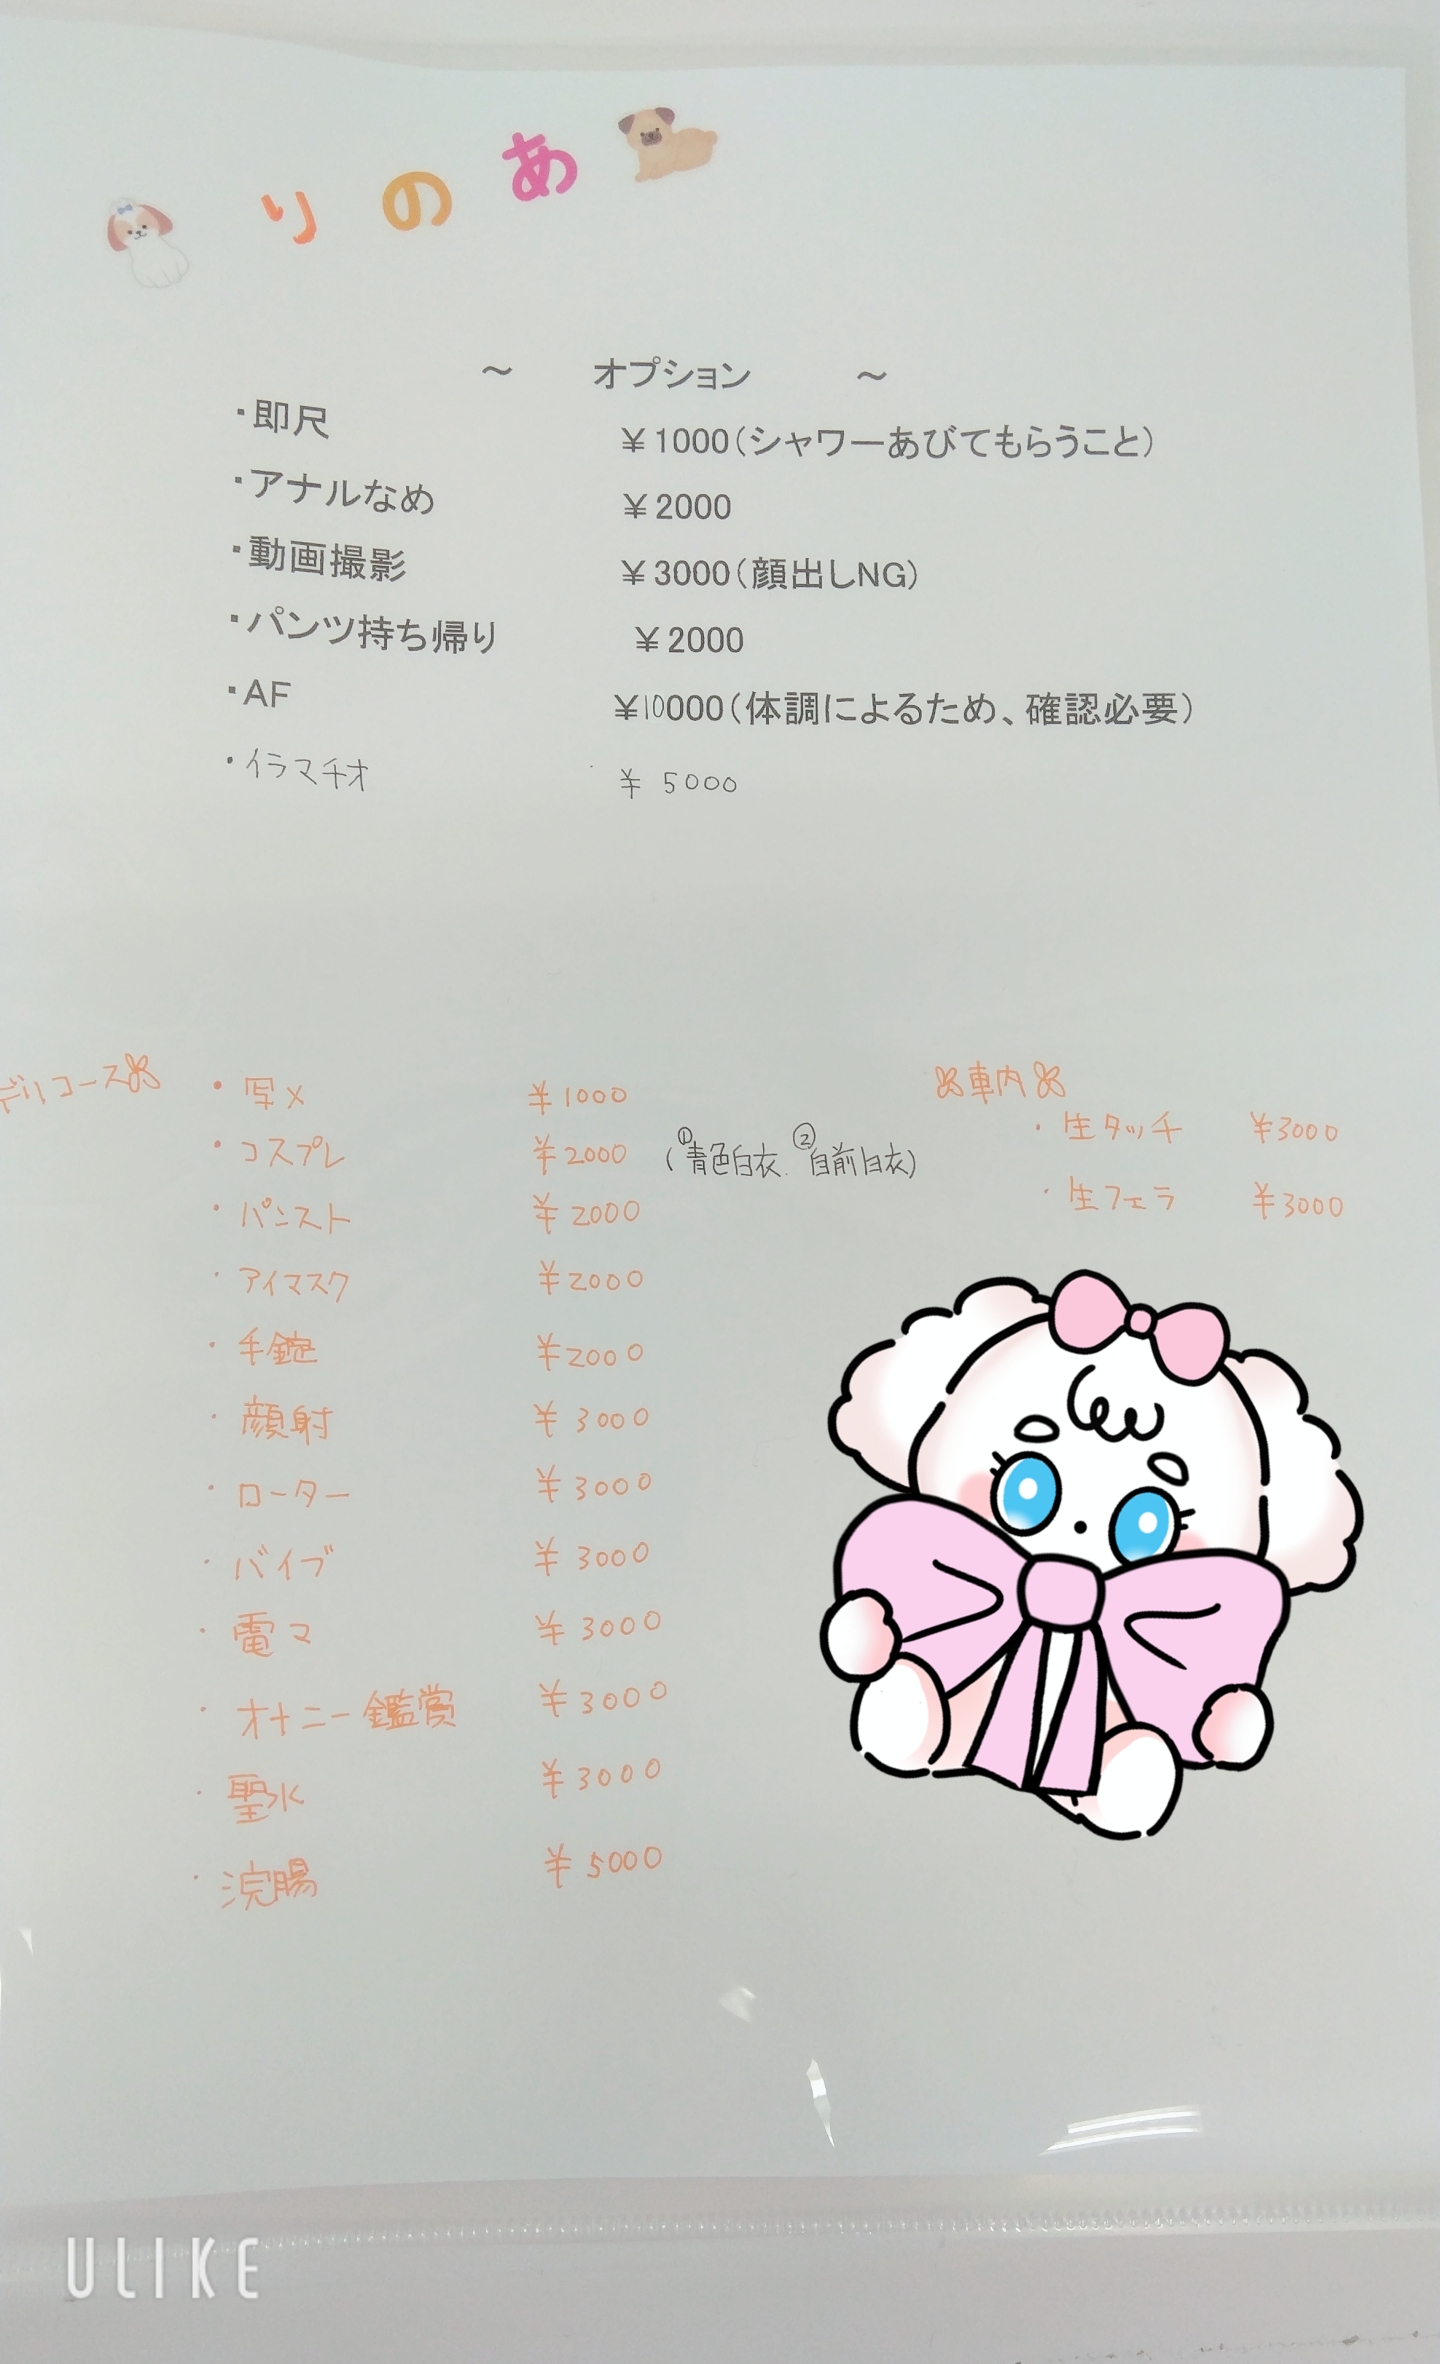 りのあ
～ オプション ～
・即尺 ￥1000(シャワーあびてもらうこと)
・アナルなめ ￥2000
・動画撮影 ￥3000(顔出しNG)
・パンツ持ち帰り ￥2000
・AF ￥10000(体調によるため、確認必要)
・イラマチオ ￥5000
デリコース
・写メ ￥1000
・コスプレ ￥2000 (①青色白衣、②自前白衣)
・パンスト ￥2000
・アイマスク ￥2000
・手錠 ￥2000
・顔射 ￥3000
・ローター ￥3000
・バイブ ￥3000
・電マ ￥3000
・オナニー鑑賞 ￥3000
・聖水 ￥3000
・浣腸 ￥5000
車内
・生タッチ ￥3000
・生フェラ ￥3000
ULIKE